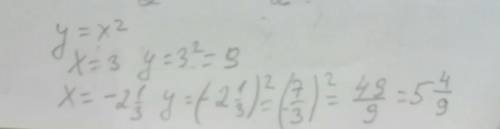 y = x²
x = 3 y = 3² = 9
x = -2 1/3 y = (-2 1/3)² = (7/3)² = 49/9 = 5 4/9